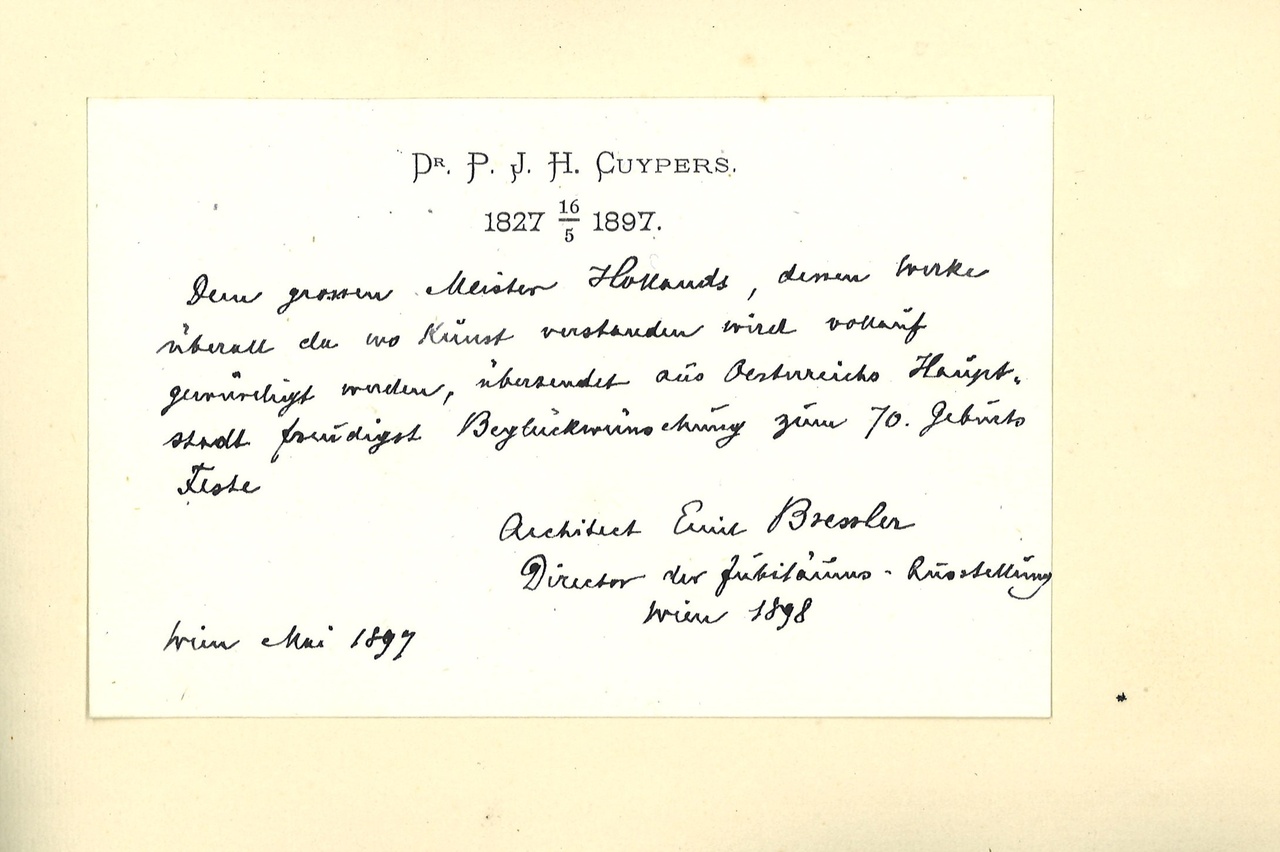 Dr. P. J. H. Cuypers.
1827 16/5 1897.
Dem grossen Meister Hollands, dessen Werke
überall da wo Kunst verstanden wird vollauf
gewürdigt werden, übersendet aus Oesterreichs Haupt-
stadt freudigst Beglückwünschung zum 70. Geburts
Feste
Architect Emil Bressler
Director der Jubiläums - Ausstellung
Wien 1898
Wien Mai 1897